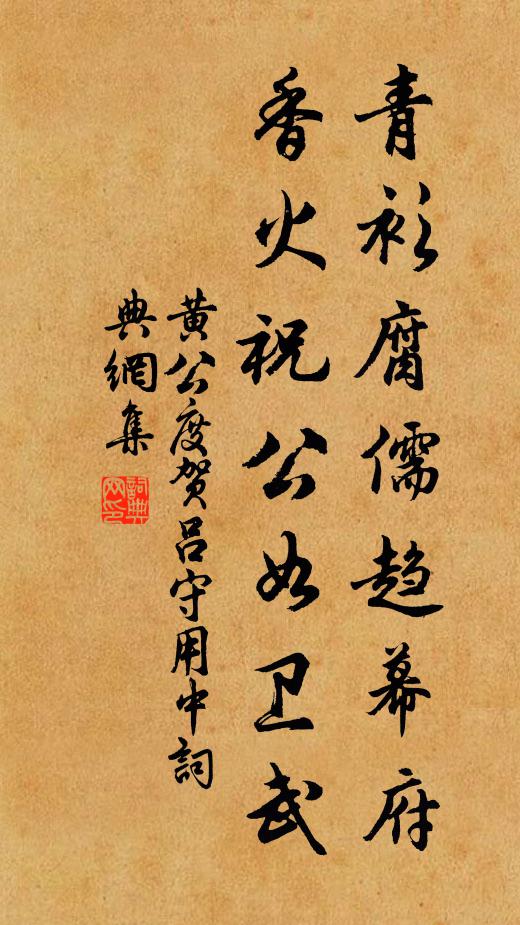 青衫腐儒趋幕府
香火祝公如卫武
黄公度贺吕守用中詞
典網集
詞典网印